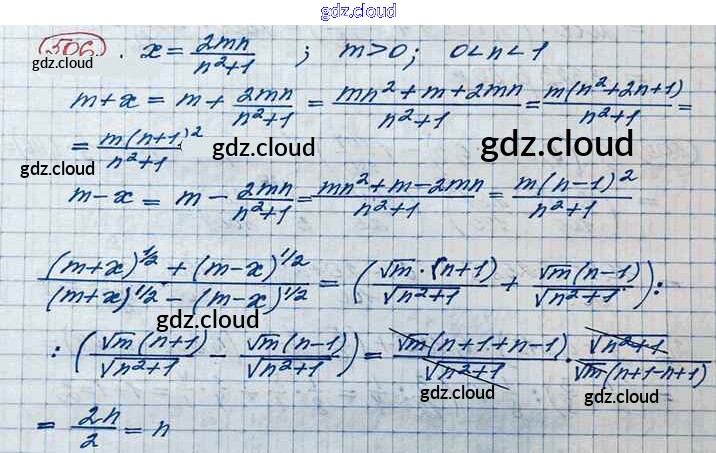 gdz.cloud
gdz.cloud
506. x = 2mn/(n²+1) ; m>0; 0<n<1
gdz.cloud
m+x = m + 2mn/(n²+1) = (mn²+m+2mn)/(n²+1) = m(n²+2n+1)/(n²+1) =
= m(n+1)²/(n²+1)
gdz.cloud gdz.cloud
gdz.cloud
m-x = m - 2mn/(n²+1) = (mn²+m-2mn)/(n²+1) = m(n-1)²/(n²+1)
((m+x)^1/2 + (m-x)^1/2)/((m+x)^1/2 - (m-x)^1/2) = (√m·(n+1)/√(n²+1) + √m(n-1)/√(n²+1)) :
gdz.cloud
: (√m(n+1)/√(n²+1) - √m(n-1)/√(n²+1)) = √m(n+1+n-1)/√(n²+1) · √(n²+1)/(√m(n+1-n+1))
gdz.cloud gdz.cloud
= 2n/2 = n